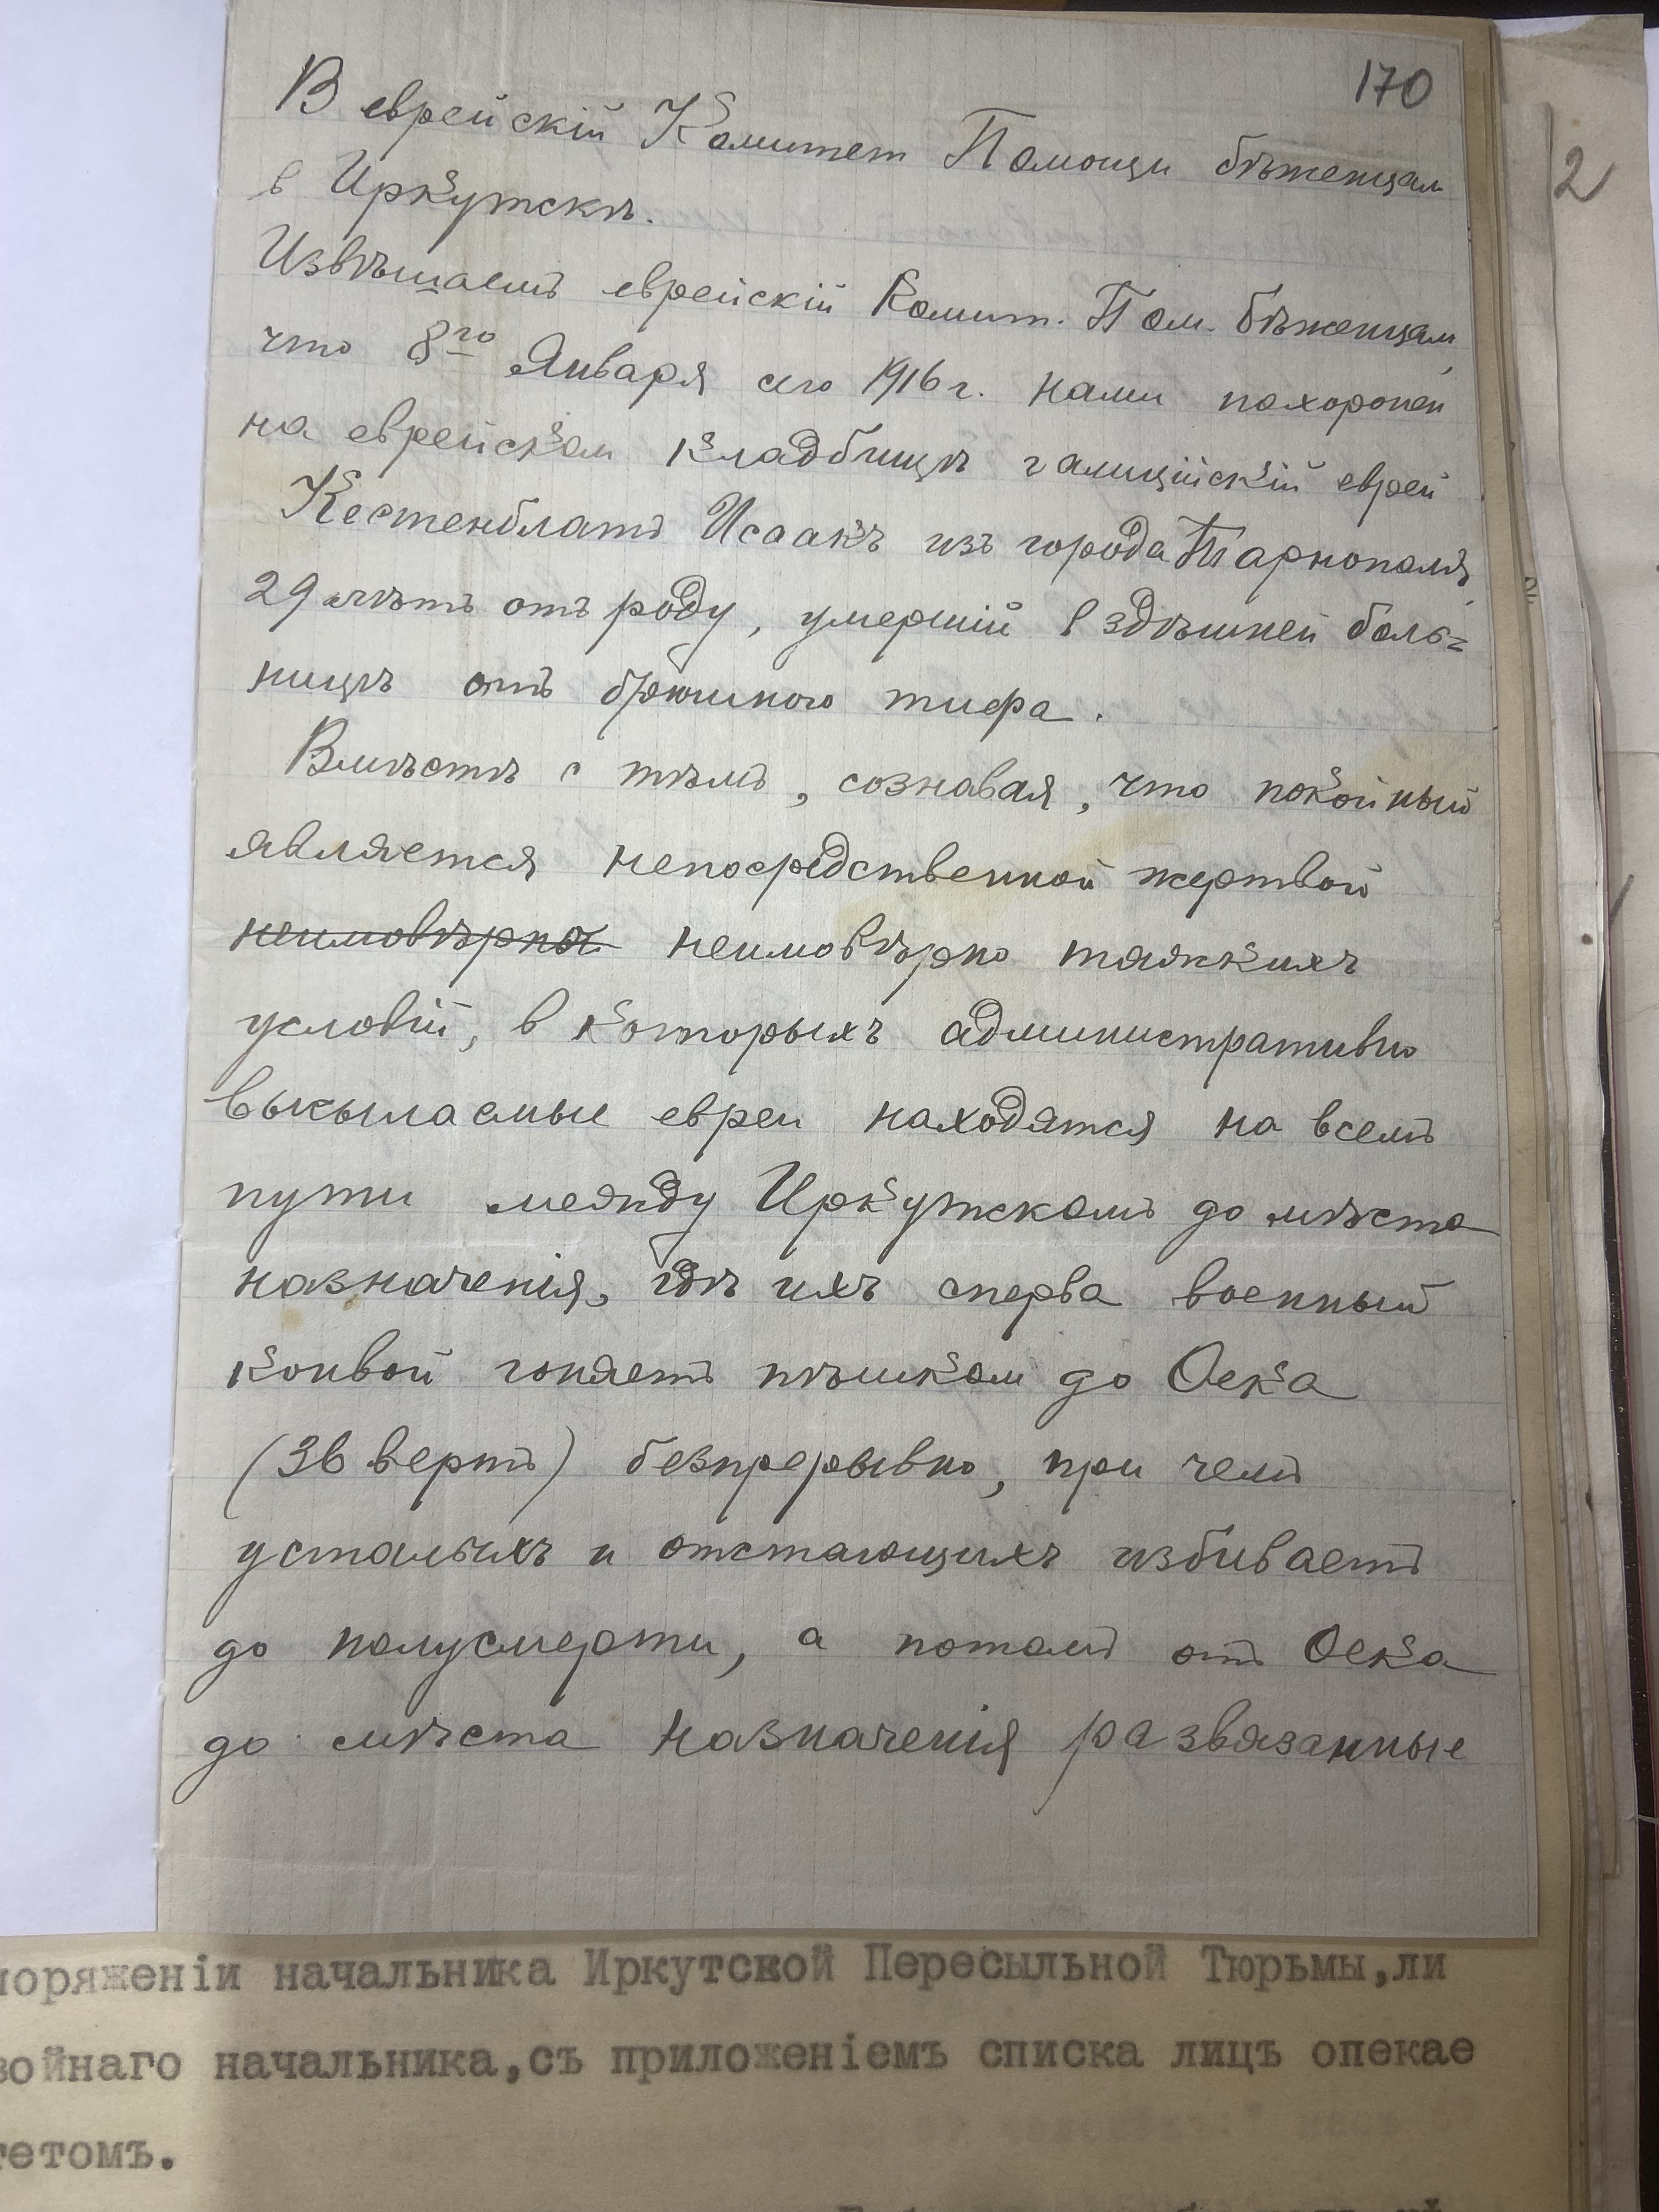 170
В еврейскій Комитет Помощи бѣженцам
в Иркутскѣ.
Извѣщаемъ еврейскій Комит. Пом. бѣженцам,
что 8го Января сего 1916 г. нами похоронен
на еврейском кладбищѣ галиційскій еврей
Кестенблатъ Исаакъ изъ города Тарнополя,
29 лѣтъ отъ роду, умершій в здѣшней боль=
ницѣ отъ брюшного тифа.
Вмѣстѣ с тѣмъ, сознавая, что покойный
является непосредственной жертвой
неимовѣрно неимовѣрно тяжкихъ
условій, в которыхъ административно
высылаемые евреи находятся на всемъ
пути между Иркутскомъ до мѣста
назначенія, гдѣ ихъ сперва военный
конвой гоняетъ пѣшком до Оека
(36 верстъ) безпрерывно, при чемъ
усталыхъ и отстающихъ избиваетъ
до полусмерти, а потомъ отъ Оека
до мѣста назначенія развязанные
2
поряженіи начальника Иркутской Пересыльной Тюрьмы,ли
войнаго начальника,съ приложеніемъ списка лицъ опекае
тетомъ.